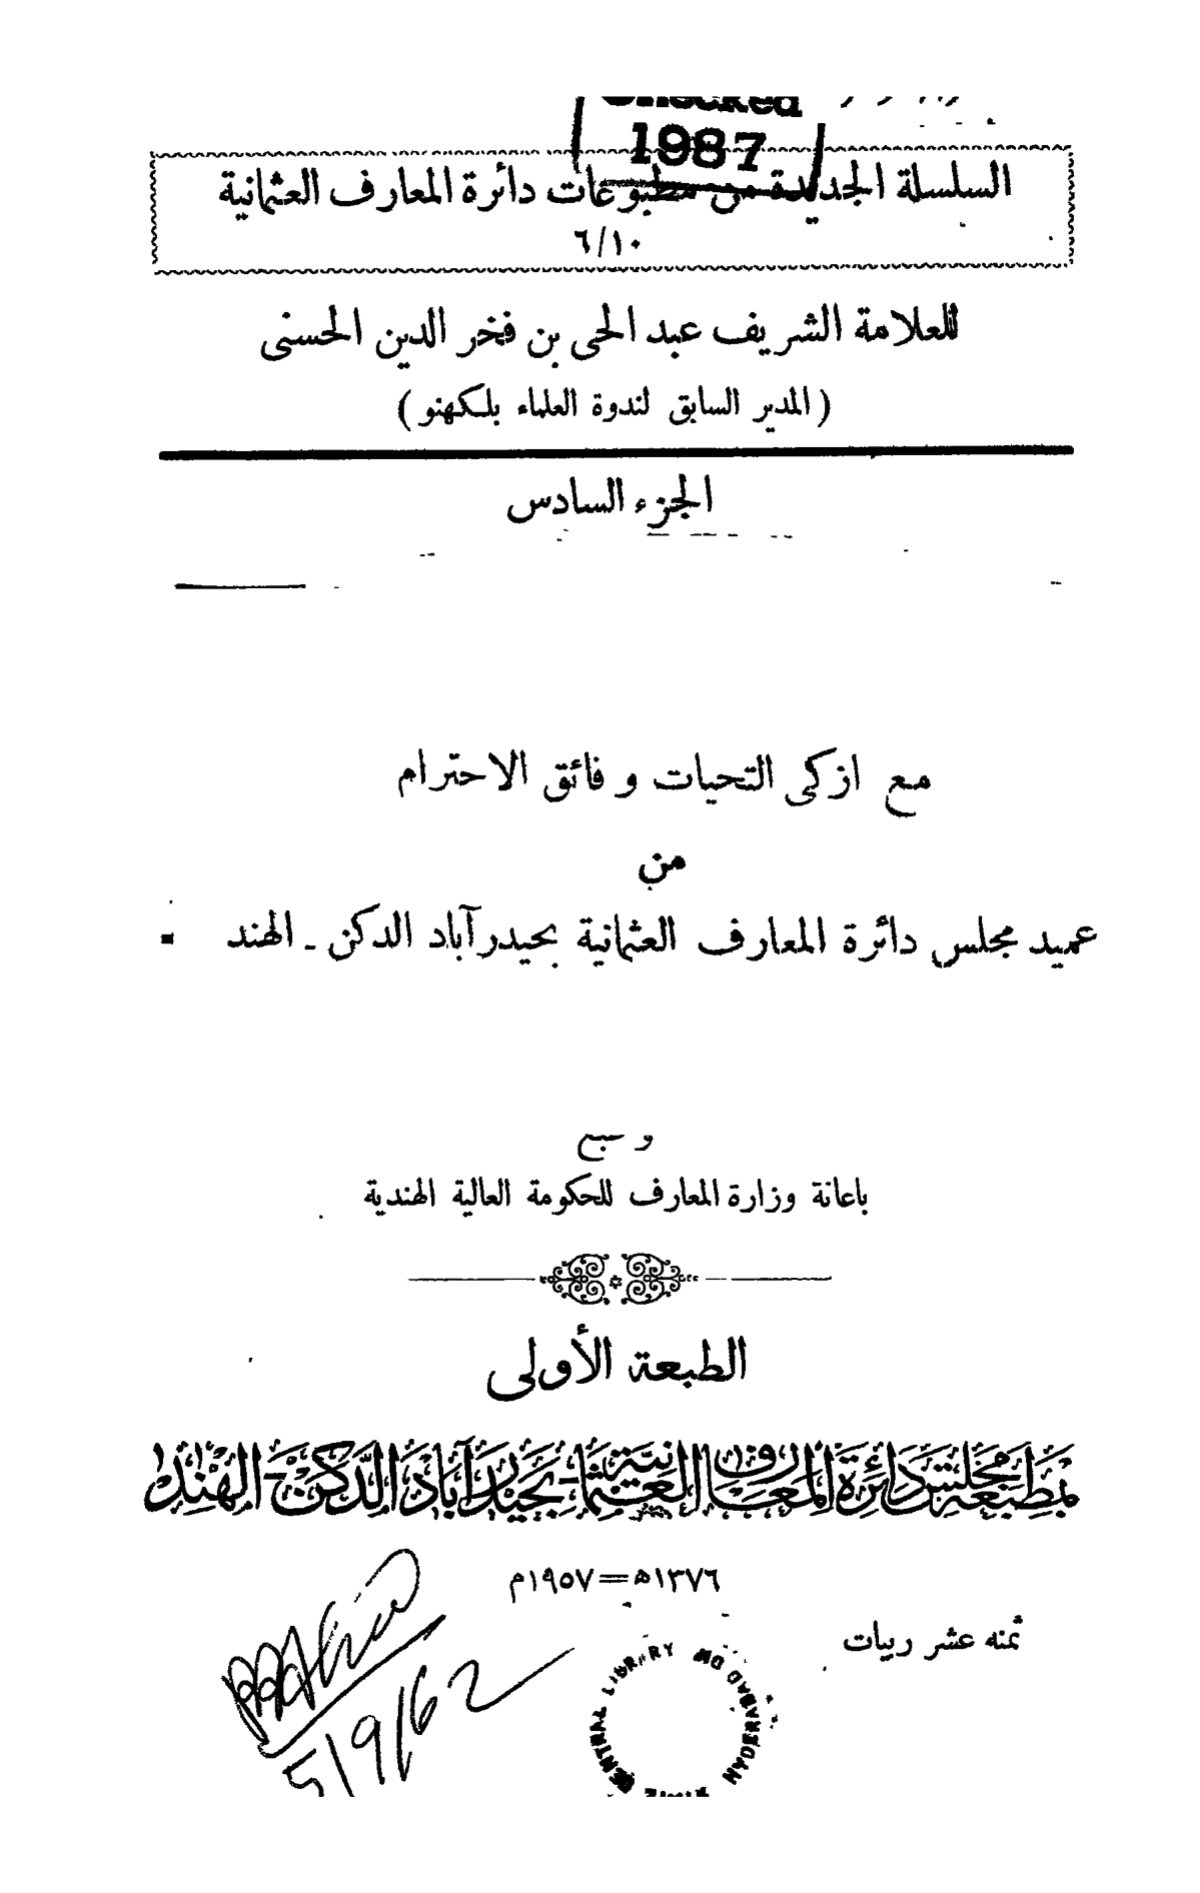 1987
السلسلة الجديدة من مطبوعات دائرة المعارف العثمانية
٦/١٠
للعلامة الشريف عبد الحى بن فخر الدين الحسنى
(المدير السابق لندوة العلماء بلكهنو)
الجزء السادس
مع ازكى التحيات و فائق الاحترام
من
عميد مجلس دائرة المعارف العثمانية بحيدرآباد الدكن ـ الهند
باعانة وزارة المعارف للحكومة العالية الهندية
الطبعة الأولى
بمطبعة مجلس دائرة المعارف العثمانية بحيدرآباد الدكن الهند
١٣٧٦ﻫ = ١٩٥٧م
ثمنه عشر ربيات
5/9/62
CENTRAL LIBRARY
HYDERABAD